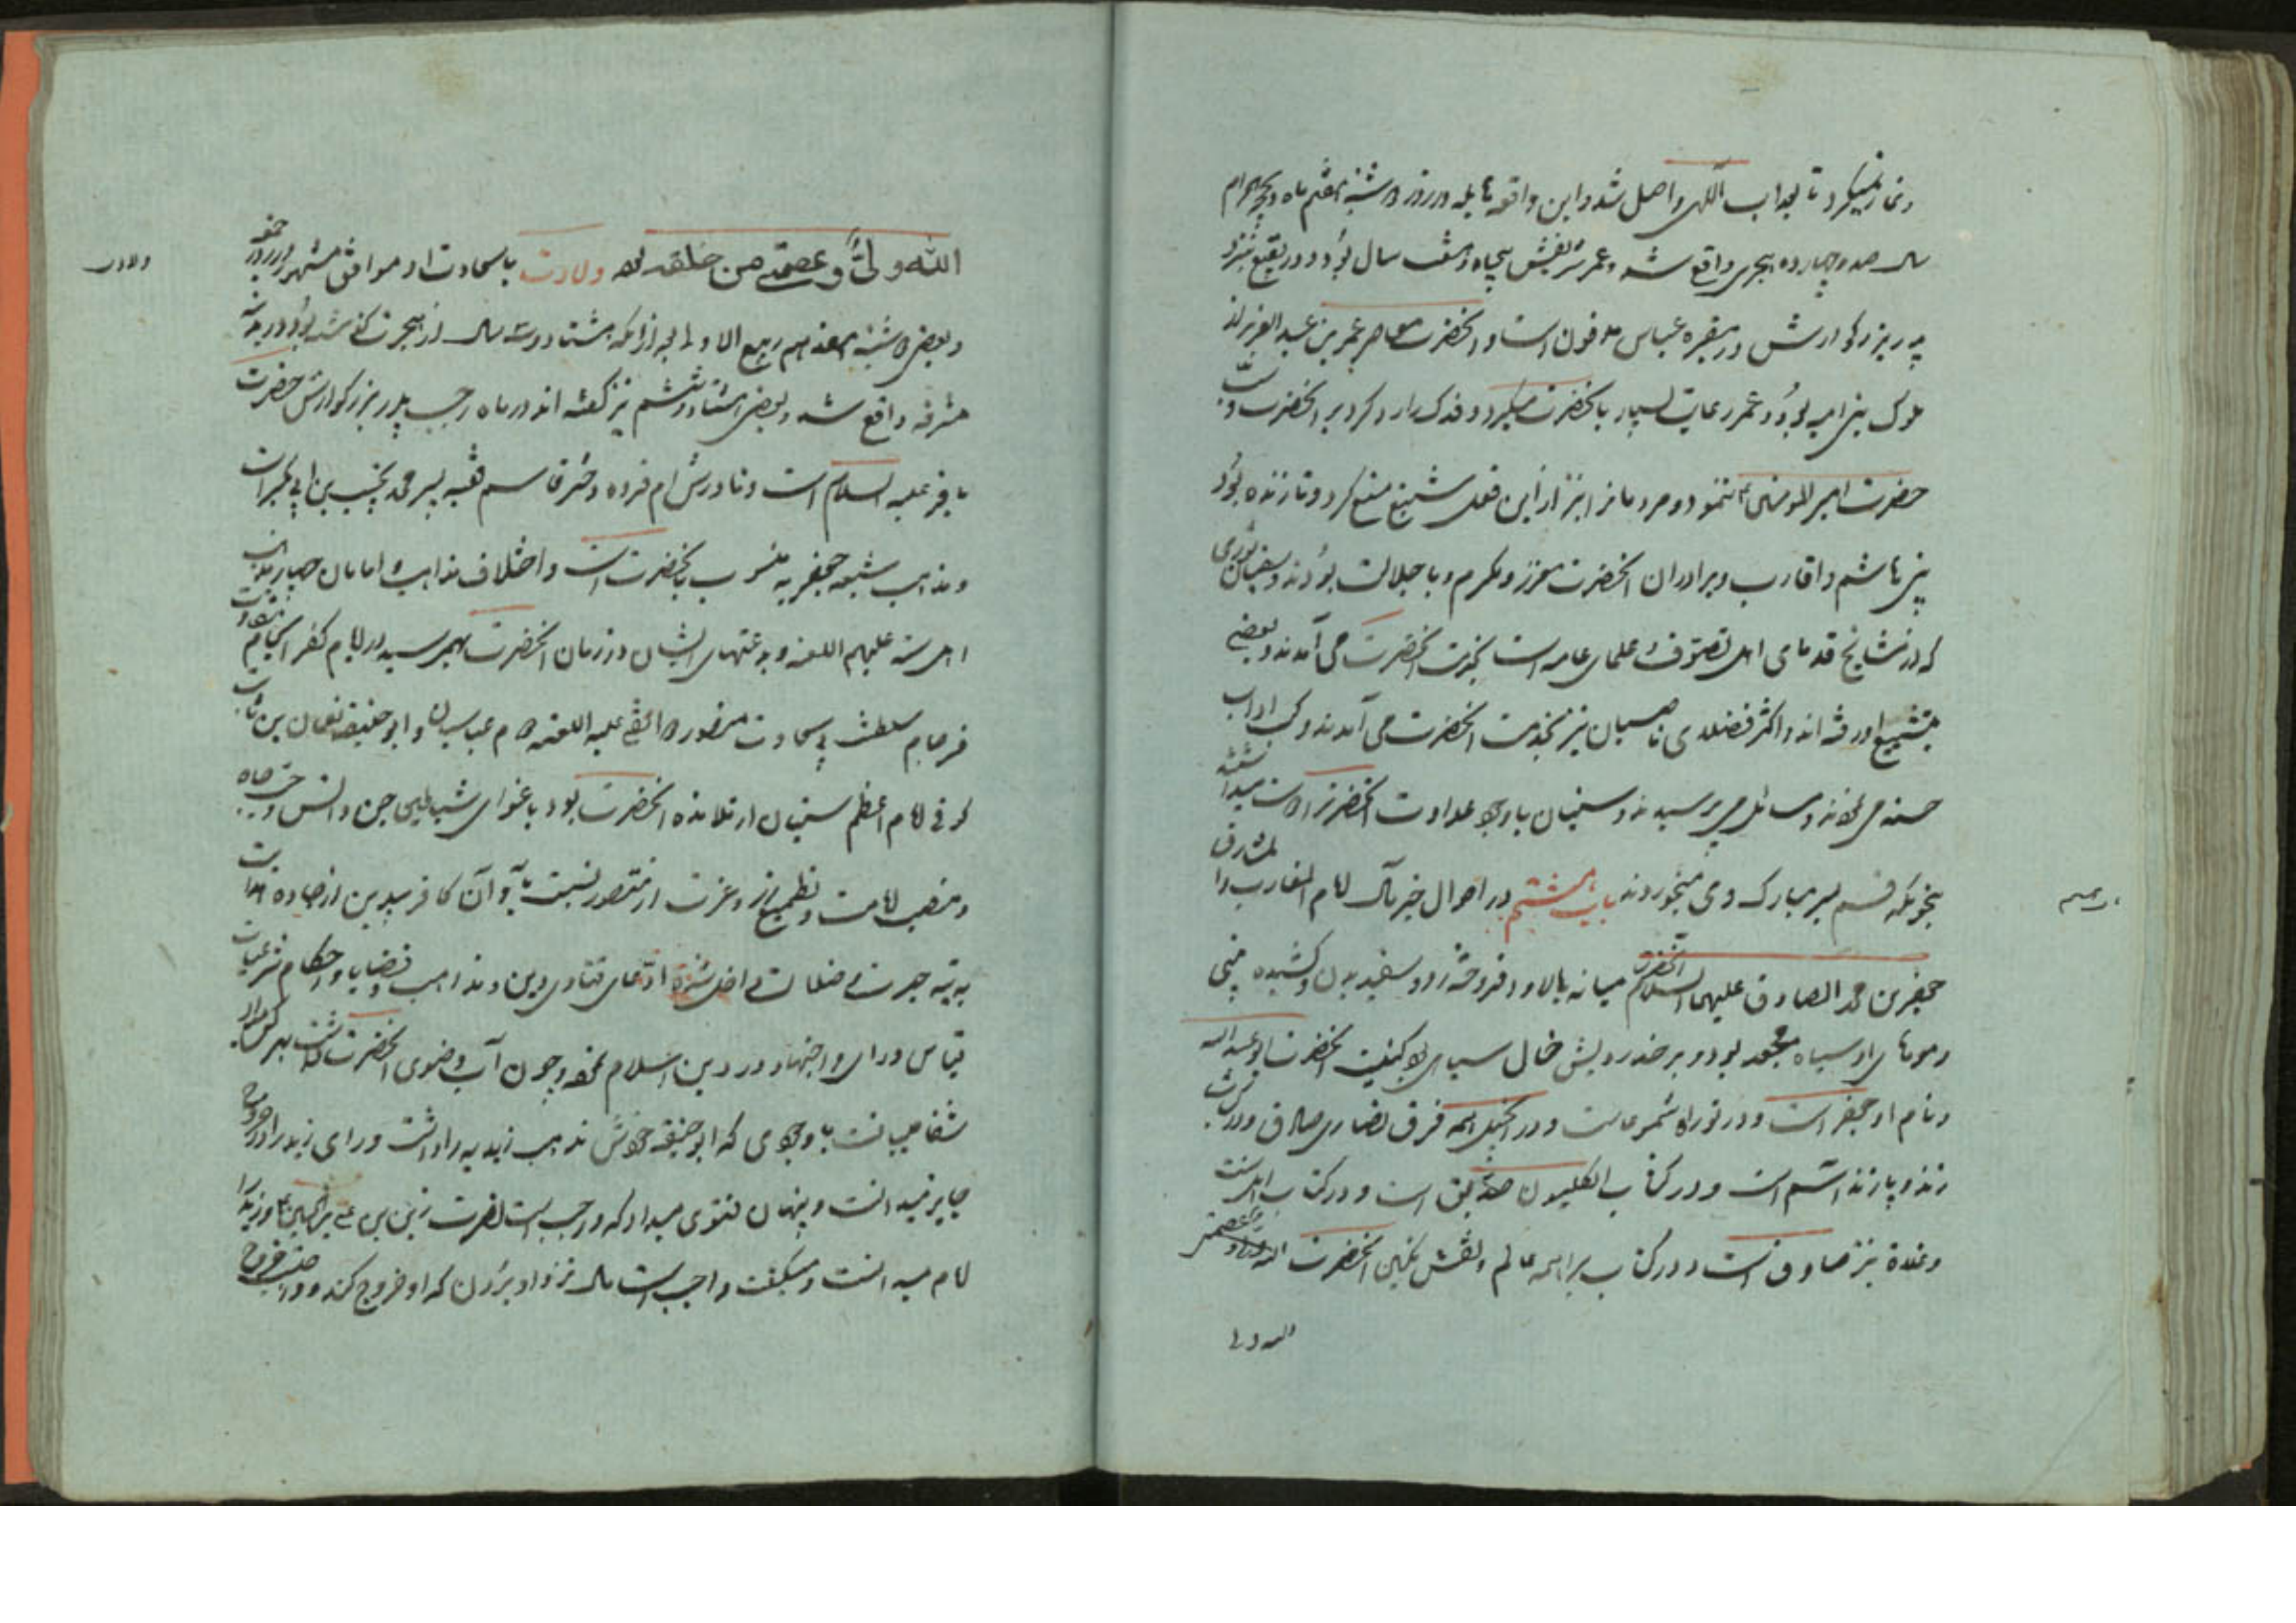 تا بعذاب الهی واصل شد و این واقعه هایله در روز دوشنبه هفتم ماه ذیحجه الحرام
سال صد و چهارده هجری واقع شد و عمر شریفش پنجاه و هفت سال بود و در بقیع نزد
پدر بزرگوارش در مقبره عباس مدفون است و آنحضرت معاصر عمر بن عبد العزیز از
ملوک بنی امیه بود و عمر رعایت بسیار بآنحضرت میکرد و فدک را رد کرد بر آنحضرت و سب
حضرت امیر المومنین ننمود و مردمانرا نیز از این فعل شنیع منع کرد و تا زنده بود
بنی هاشم و اقارب و برادران آنحضرت معزز و مکرم و با جلالت بودند و سفیان ثوری
که از مشایخ قدمای اهل تصوف و علمای عامه است بخدمت آنحضرت می آمدند و بعضی
بتشیع او رفته اند و اکثر فضلای ناصبیان نیز بخدمت آنحضرت می آمدند و کسب اداب
حسنه می کردند و مسائل می پرسیدند و سنیان باوجود عداوت آنحضرت را دوست میداشتند
بنحویکه قسم بسر مبارک وی میخوردند باب هشتم در احوال خیر مآل امام المغارب و المشارق
جعفر بن محمد الصادق علیهما السلام آنحضرت میانه بالا و افروخته رو و سفید بدن و کشیده بینی
و موهای او سیاه و مجعد بود و بر خد رویش خال سیاهی بود کنیت آنحضرت ابو عبد الله
و نام او جعفر است و در توراة شمرعاست و در انجیل همه فرق نصاری صادق و در
زند و پازند است و در کتاب انکلیون است و در کتاب اهل سنت
نیز صادق است و در کتاب براهمه عالم و نقش نگین آنحضرت الله
الله ولی
الله ولیی و عصمتی من خلقه بود ولادت با سعادت او موافق مشهور در روز جمعه
و بعضی دوشنبه هفدهم ربیع الاول بعد از آنکه هشتاد و سه سال از هجرت گذشته بود در مدینه
مشرفه واقع شد و بعضی هشتاد و ششم نیز گفته اند در ماه رجب پدر بزرگوارش حضرت
باقر علیه السلام است و مادرش ام فروه دختر قاسم فقیه پسر محمد نجیب بن ابی بکر است
و مذهب شیعه جعفریه منسوب بآنحضرت است و اختلاف مذاهب و امامان چهار مذهب
اهل سنه علیهم اللعنه و بدعتهای ایشان در زمان آنحضرت بهم رسید در ایام کفر انجام
فرجام سلطنت بی سعادت منصور دوانقی علیه اللعنه عباسیان و ابو حنیفه نعمان بن ثابت
کوفی امام اعظم سنیان از تلامذه آنحضرت بود باغوای شیاطین جن و انس و حب جاه
و منصب امامت و تطمیع زر و عزت از منصور نسبت بآن کافر بیدین از جاده هدایت
به تیه حیرت و ضلالت ادعای فتاوی دین و مذاهب و قضایا و احکام شرعیات
قیاس و رای و اجتهاد در دین اسلام نمود و چون آب وضوی آنحضرت
شفا میدانست با وجودی که ابو حنیفه خودش مذهب زیدیه را داشت و رای زید را در خروج
جایز میدانست و پنهان فتوی میداد که واجب است نصرت زید بن علی بن الحسین و زید را
امام میدانست و میگفت واجب است مال نزد او بردن که او خروج کند
ولادت